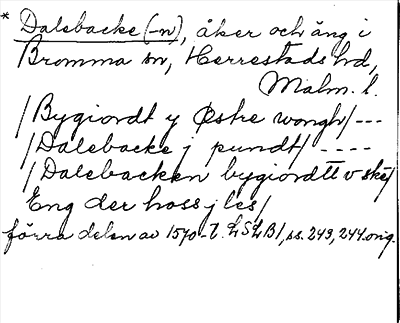 * Dalsbacke (-n), åker och äng i
Bromma sn, Herrestads hd,
Malm. l.
/Bygiordt y Østre wongh/ ---
/Dalebacke j pundt/ ----
/Dalebacken bygiordtt v skê/
Eng der hoss j les/
förra delen av 1570-t. LSLB1, ss. 243, 244. orig.